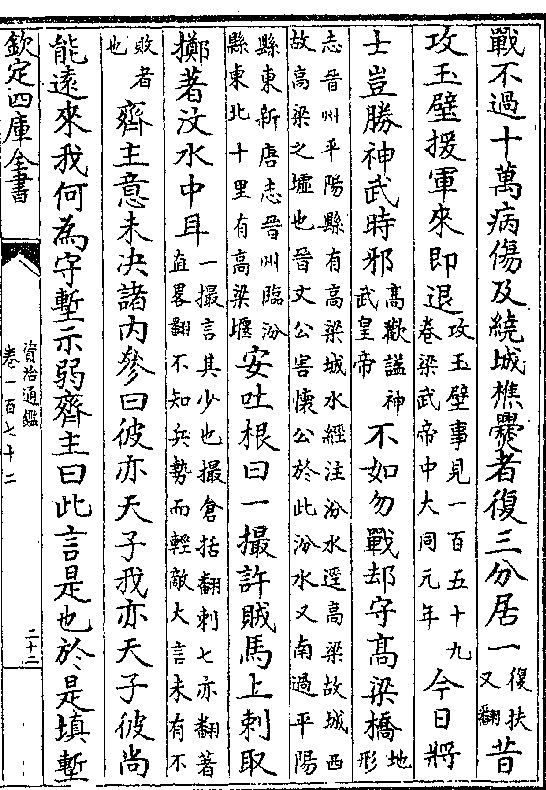 戰不過十萬病傷及繞城樵爨者復三分居一復扶又翻昔
攻玉壁援軍來即退攻玉壁事見一百五十九卷梁武帝中大同元年今日將
士豈勝神武時邪高歡謚神武皇帝不如勿戰却守高梁橋地形
志晉州平陽縣有高梁城水經注汾水逕高梁故城西故高梁之墟也晉文公害懷公於此汾水又南過平陽
縣東新唐志晉州臨汾縣東北十里有高梁堰安吐根曰一撮許賊馬上刺取
擲著汶水中耳一撮言其少也撮倉括翻刺七亦翻著直畧翻不知兵勢而輕敵大言未有不
敗者也齊主意未決諸內參曰彼亦天子我亦天子彼尚
能遠來我何為守塹示弱齊主曰此言是也於是填塹
欽定四庫全書
資治通鑑
卷一百七十二
二十二